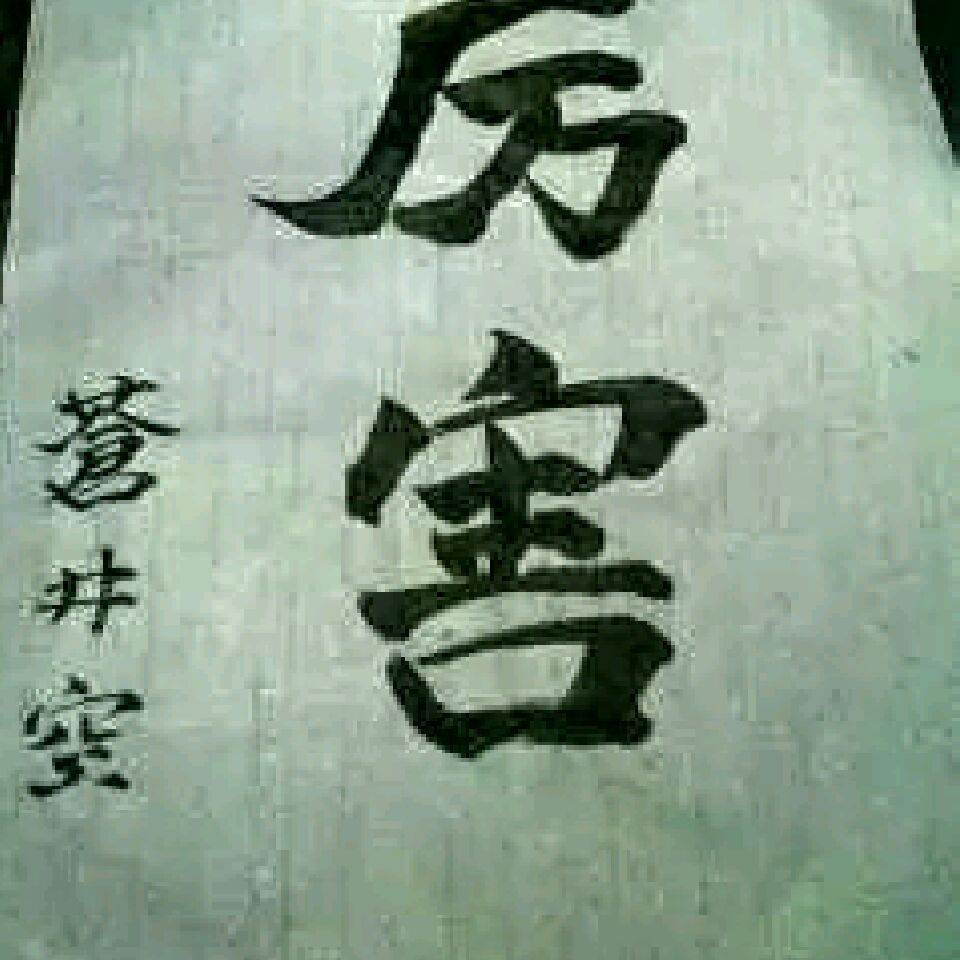 厉害
蒼井空